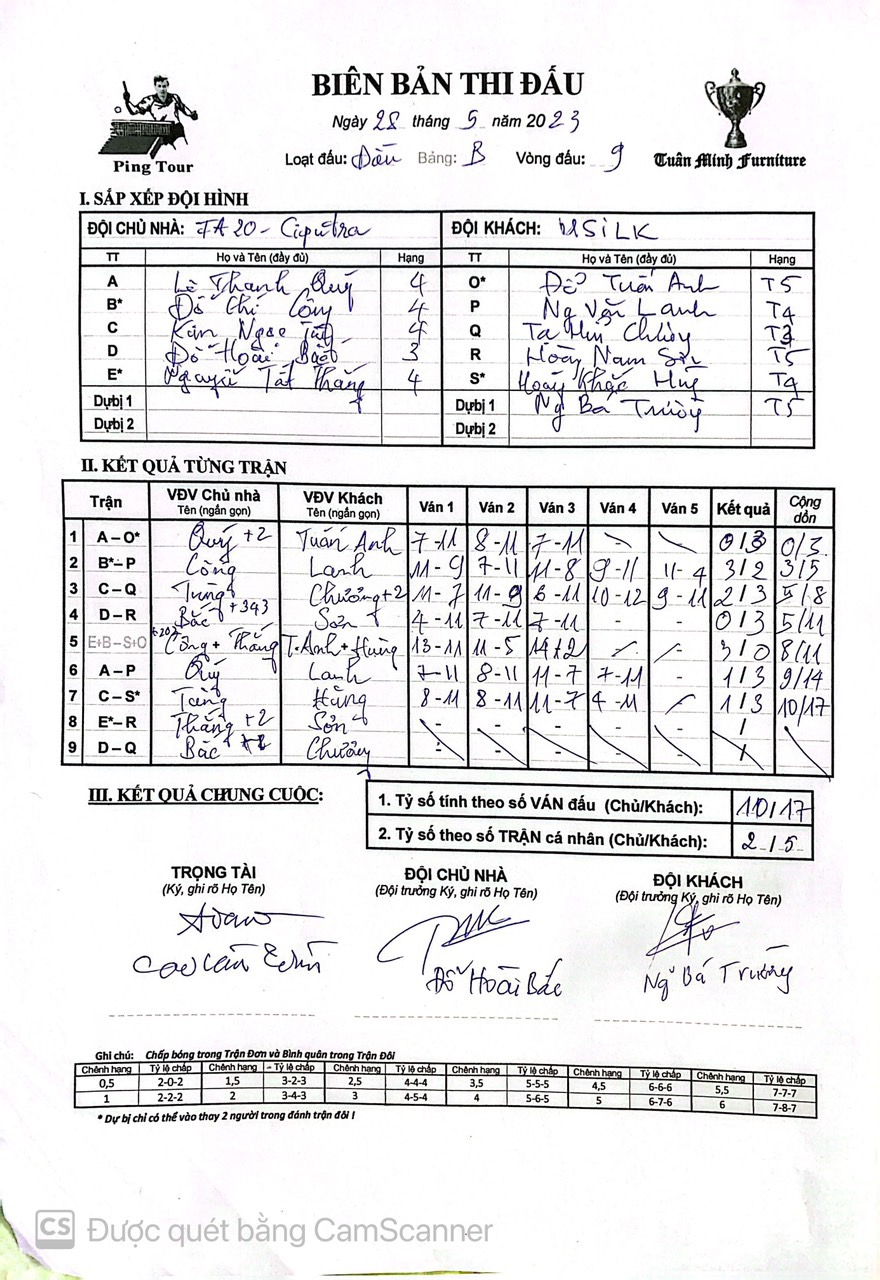 BIÊN BẢN THI ĐẤU
Ngày 28 tháng 5 năm 2023
Ping Tour
Loạt đấu: Bảng: B Vòng đấu: 9
Tuấn Minh Furniture
I. SẮP XẾP ĐỘI HÌNH
ĐỘI CHỦ NHÀ: FA20 - Ciputra ĐỘI KHÁCH: USiLK
TT Họ và Tên (đầy đủ) Hạng TT Họ và Tên (đầy đủ) Hạng
A Lê Thanh Quý 4 O* Đỗ Tuấn Anh T5
B* Đỗ Chí Công 4 P Ng Văn Lanh T4
C Kim Ngọc Tùng 4 Q Ta
D Đỗ Hoài Bắc 3 R Hoàng Nam Sơn T5
E* Nguyễn Tất Thắng 4 S* Hoàng Khắc Hùng T4
Dự bị 1 Dự bị 1 Ng Bá Trường T5
Dự bị 2 Dự bị 2
II. KẾT QUẢ TỪNG TRẬN
Trận VĐV Chủ nhà Tên (ngắn gọn) VĐV Khách Tên (ngắn gọn) Ván 1 Ván 2 Ván 3 Ván 4 Ván 5 Kết quả Cộng dồn
1 A – O* Quý +2 Tuấn Anh 7-11 8-11 7-11 - - 0/3 0/3
2 B* – P Công Lanh 11-9 7-11 11-8 9-11 11-4 3/2 3/5
3 C – Q Tùng Chương+2 11-7 11-9 6-11 10-12 9-11 2/3 5/8
4 D – R Bắc +343 Sơn 4-11 7-11 7-11 - - 0/3 5/11
5 E+B – S+O +202 Công + Thắng T.Anh+Hùng 13-11 11-5 14 12 - - 3/0 8/11
6 A – P Quý Lanh 7-11 8-11 11-7 7-11 - 1/3 9/14
7 C – S* Tùng Hùng 8-11 8-11 11-7 4-11 - 1/3 10/17
8 E* – R Thắng +2 Sơn - - - - - /
9 D – Q Bắc Chương - - - - - /
III. KẾT QUẢ CHUNG CUỘC:
1. Tỷ số tính theo số VÁN đấu (Chủ/Khách): 10/17
2. Tỷ số theo số TRẬN cá nhân (Chủ/Khách): 2/5
TRỌNG TÀI ĐỘI CHỦ NHÀ ĐỘI KHÁCH
(Ký, ghi rõ Họ Tên) (Đội trưởng Ký, ghi rõ Họ Tên) (Đội trưởng Ký, ghi rõ Họ Tên)
Đỗ Hoài Bắc Ng Bá Trường
Ghi chú: Chấp bóng trong Trận Đơn và Bình quân trong Trận Đôi
Chênh hạng Tỷ lệ chấp Chênh hạng Tỷ lệ chấp Chênh hạng Tỷ lệ chấp Chênh hạng Tỷ lệ chấp Chênh hạng Tỷ lệ chấp Chênh hạng Tỷ lệ chấp
0,5 2-0-2 1,5 3-2-3 2,5 4-4-4 3,5 5-5-5 4,5 6-6-6 5,5 7-7-7
1 2-2-2 2 3-4-3 3 4-5-4 4 5-6-5 5 6-7-6 6 7-8-7
* Dự bị chỉ có thể vào thay 2 người trong đánh trận đôi !
CS Được quét bằng CamScanner